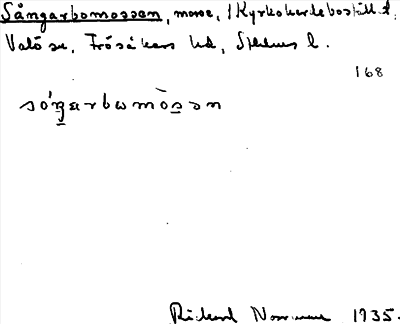 Sångarbomossen, mosse, i Kyrkoherdebostället,
Valö sn, Frösåkers hd, Sthlms l.
168
sóŋarbωmòsən
Rickard 1935.